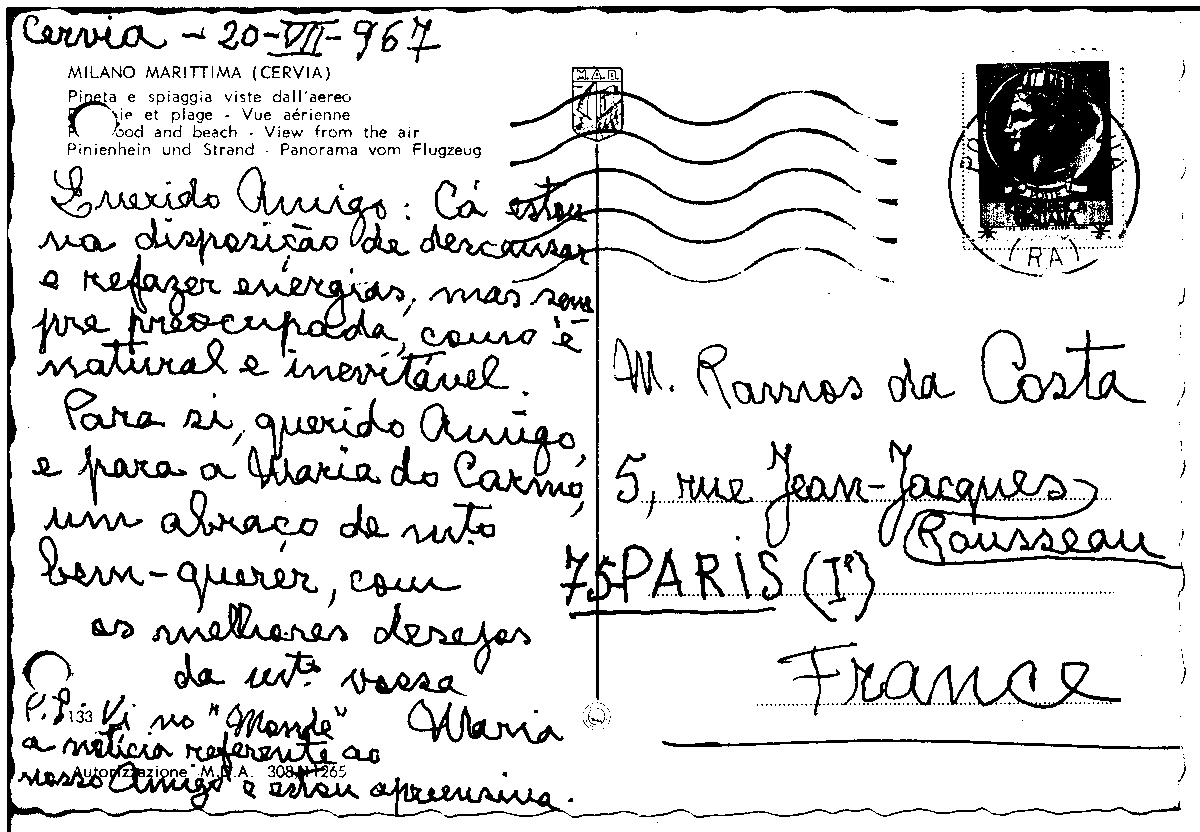 Cervia - 20-VII-967
MILANO MARITTIMA (CERVIA)
Pineta e spiaggia viste dall'aereo
ie et plage - Vue aérienne
ood and beach - View from the air
Pinienhein und Strand - Panorama vom Flugzeug
M.A.R.
(RA)
Querido Amigo: Cá estou
na disposição de descansar
e refazer energias, mas sem
pre preocupada, como é
natural e inevitável.
Para si, querido Amigo,
e para a Maria do Carmo,
um abraço de mto
bem-querer, com
os melhores desejos
da mta vossa
Maria
P.S. Vi no "Monde"
a notícia referente ao
nosso Amigo e estou apreensiva.
133
Autorizzazione M.R.A. 308 N 1265
M. Ramos da Costa
5, rue Jean-Jacques
Rousseau
75 PARIS (Ier)
France